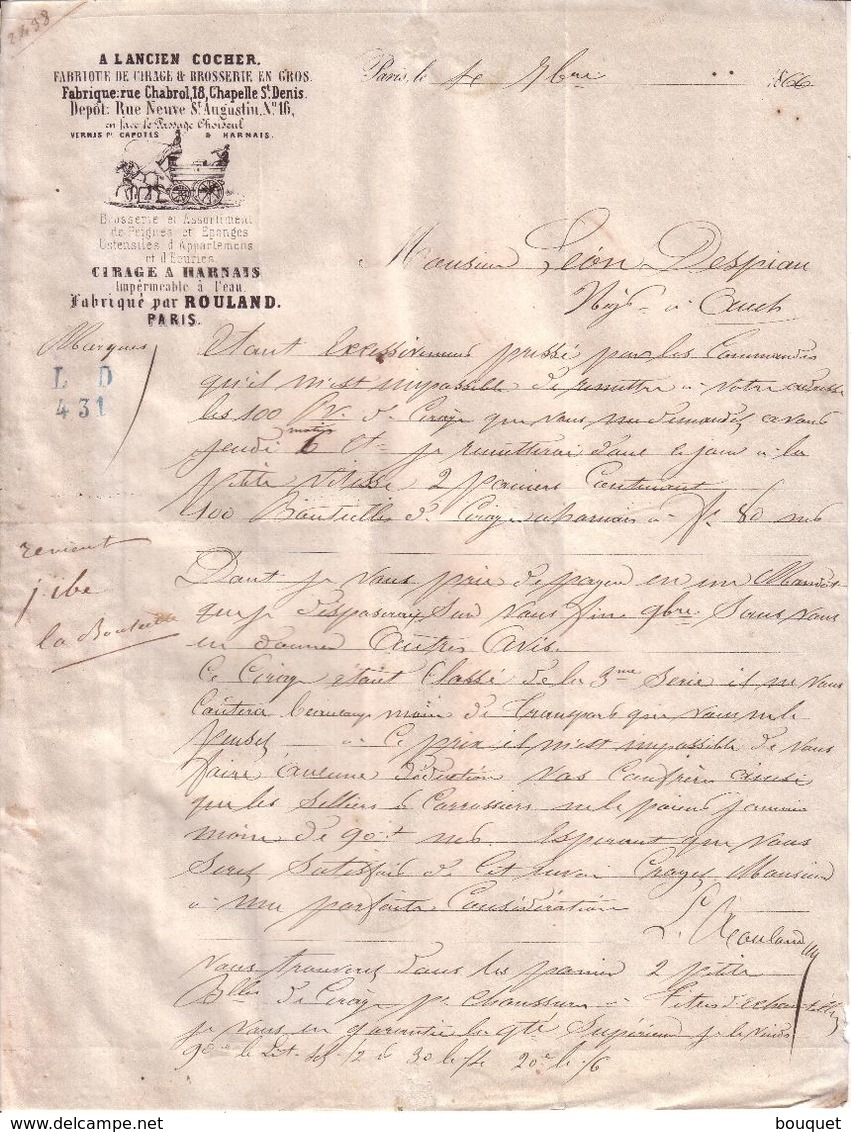 2498
A LANCIEN COCHER.
FABRIQUE DE CIRAGE & BROSSERIE EN GROS.
Fabrique: rue Chabrol, 18, Chapelle St. Denis.
Depôt: Rue Neuve St. Augustin, No. 16,
en face le Passage Choiseul
VERNIS Pr. CAPOTES & HARNAIS.
Brosserie et Assortiment
de Peignes et Eponges
Ustensiles d'Appartemens
et d'Ecuries.
CIRAGE A HARNAIS
Impérmeable à l'eau.
Fabriqué par ROULAND.
PARIS.
Paris, le 4 7bre 1866
Monsieur Léon Despiau
Négt à Auch
Marques
L D
431
Etant excessivement pressé par les Commandes
qu'il m'est impossible de remettre à votre adresse
les 100 de Cirage que vous me demandez avant
jeudi matin 6 Ct je remetterai dans ce jour à la
petite vitesse 2 paniers Contenant
100 Bouteilles de Cirage à harnais à fr 80
revient
la Bouteille
Dont je vous prie de payer en un Mandat
que je disposerai sur vous fin 9bre Sans vous
en donner Autres Avis.
Ce Cirage étant Classé de la 3me Serie il ne vous
Coutera beaucoup moin de transport que vous ne le
pensez à Ce prix il m'est impossible de vous
faire aucune déduction Vos Confrères ainsi
que les Selliers & Carrossiers ne le paient jamais
moin de 90 Esperant que vous
serez Satisfait de Cet envoi Croyez Monsieur
à ma parfaite Considération
Rouland
vous trouverez dans les panier 2 petite
Blles de Cirage pr Chaussure à titre d'échantillon
je vous en garantie la qté Supérieure je le vends
90c le Lit 1/2 à 30 le 1/4 20c le 1/6
bouquet